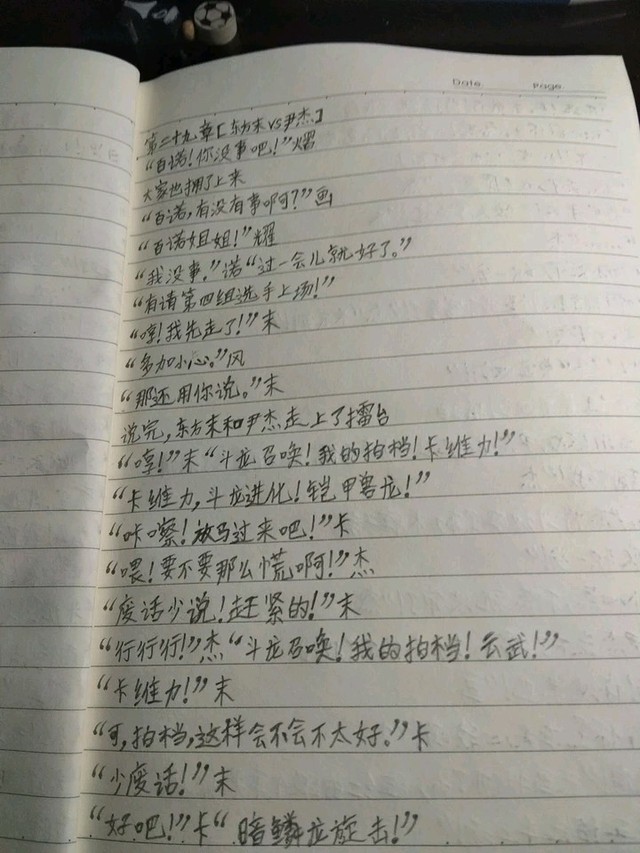 Date Page
第二十九章[东方末vs尹杰]
“百诺!你没事吧!”熠
大家也拥了上来
“百诺,有没有事啊?”画
“百诺姐姐!”耀
“我没事。”诺“过一会儿就好了。”
“有请第四组选手上场!”
“哼!我先走了!”末
“多加小心。”风
“那还用你说。”末
说完,东方末和尹杰走上了擂台
“哼!”末“斗龙召唤!我的拍档!卡维力!”
“卡维力,斗龙进化!铠甲兽龙!”
“咔嚓!放马过来吧!”卡
“喂!要不要那么慌啊!”杰
“废话少说!赶紧的!”末
“行行行!”杰“斗龙召唤!我的拍档!云武!”
“卡维力!”末
“可,拍档,这样会不会不太好。”卡
“少废话!”末
“好吧!”卡“暗鳞龙旋击!”